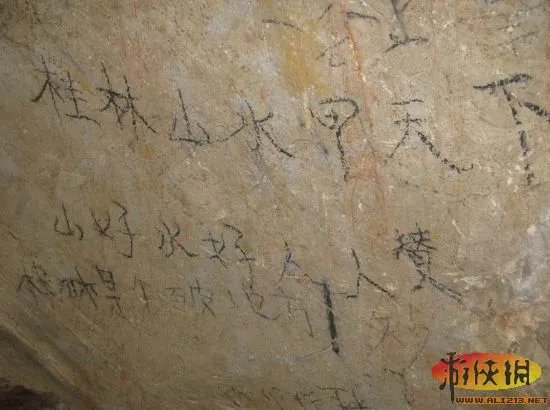 上
桂林山水甲天下
山好水好个人赞
桂林是个破地方
游侠网
WWW.ALI213.NET